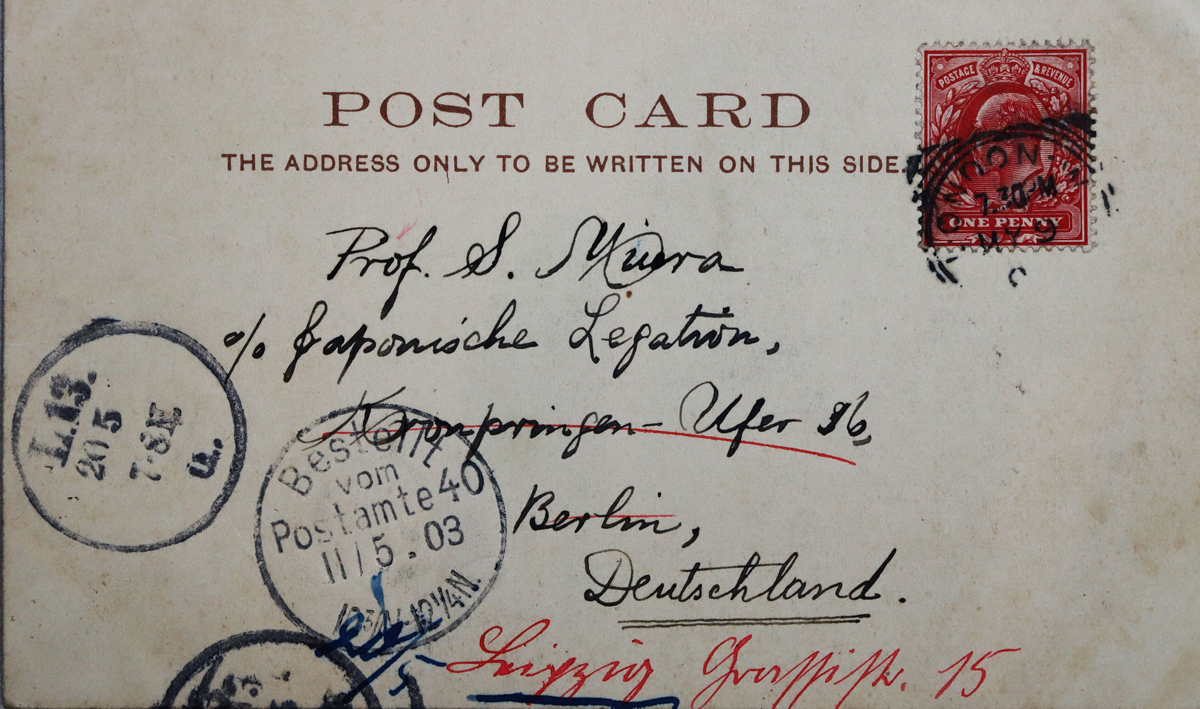 POST CARD
THE ADDRESS ONLY TO BE WRITTEN ON THIS SIDE
POSTAGE & REVENUE
ONE PENNY
LONDON
7.30PM
MY 9
Prof. S. Miura
c/o Japonische Legation,
Kronprinzen-Ufer 16,
Berlin,
Deutschland.
Leipzig Grassistr. 15
L.13.
20 5
7-8N
u.
Bestellt
vom
Postamte 40
11/5.03
12¼N.